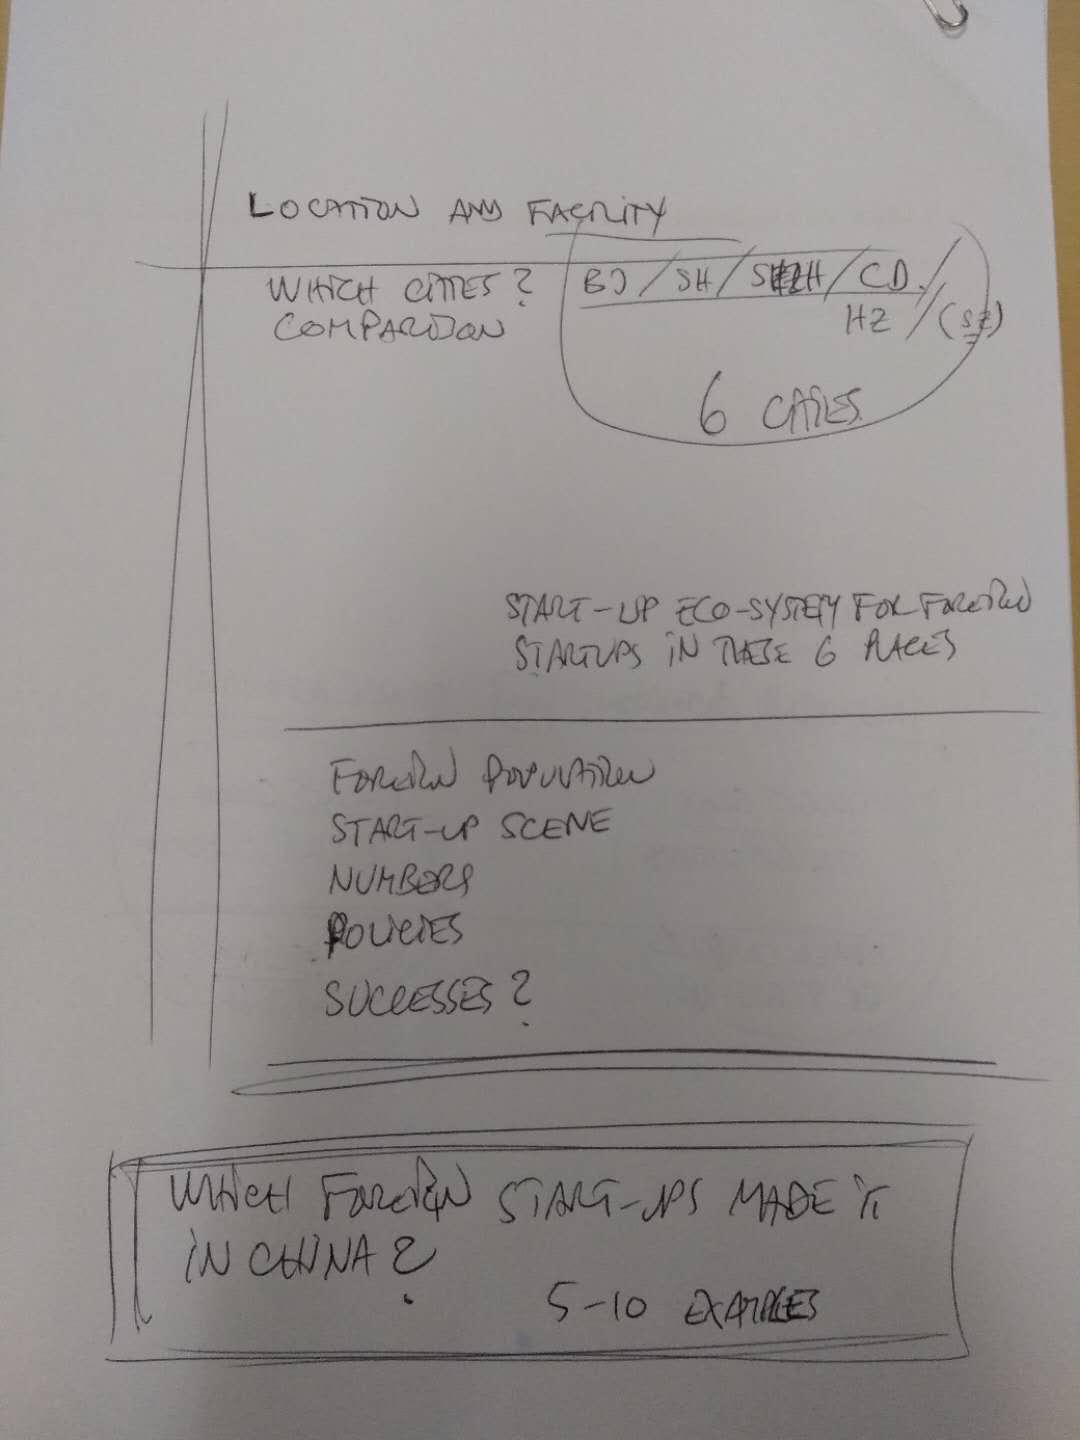 LOCATION AND FACILITY
WHICH CITIES? BJ / SH / SHZH / CD /
COMPARISON HZ / (SZ)
6 CITIES
START-UP ECO-SYSTEM FOR FOREIGN
STARTUPS IN THESE 6 PLACES
FOREIGN POPULATION
START-UP SCENE
NUMBERS
POLICIES
SUCCESSES?
WHICH FOREIGN START-UPS MADE IT
IN CHINA?
5-10 EXAMPLES